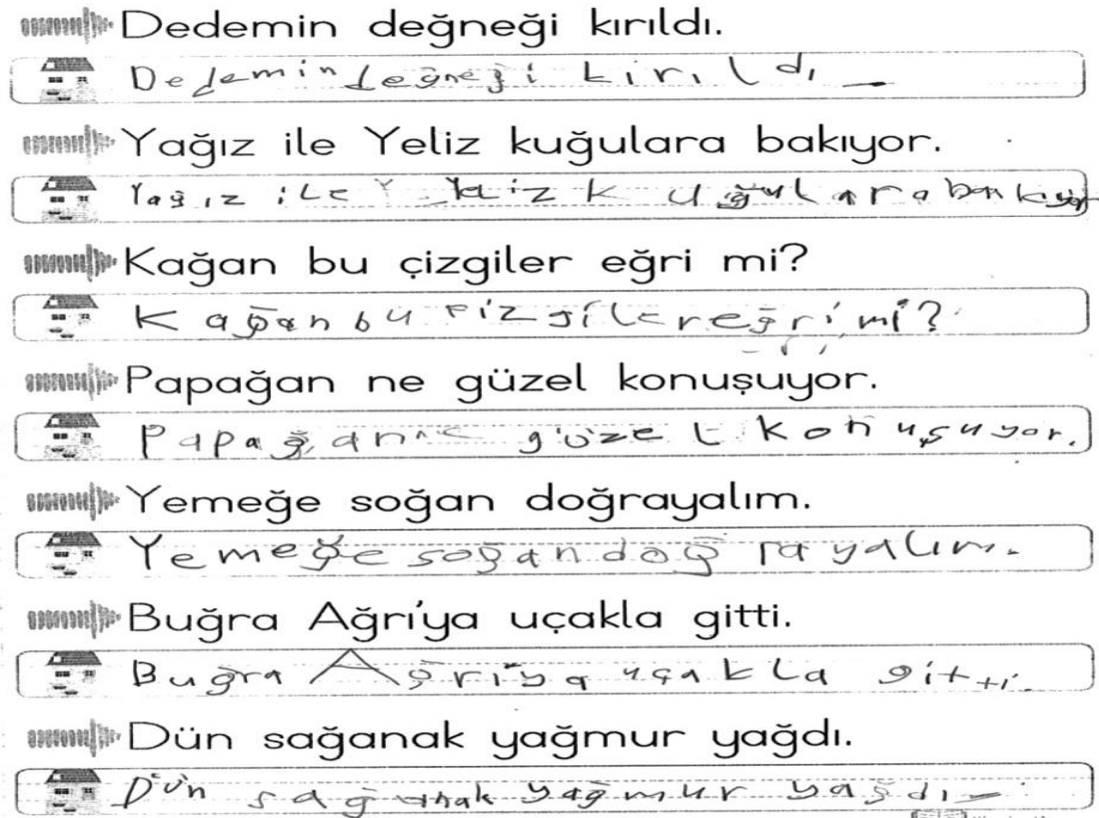 Dedemin değneği kırıldı.
Dedemin değneği kırıldı
Yağız ile Yeliz kuğulara bakıyor.
Yağız ile kuğulara
Kağan bu çizgiler eğri mi?
Kağan bu çizgiler eğri mi?
Papağan ne güzel konuşuyor.
Papağan ne güzel konuşuyor.
Yemeğe soğan doğrayalım.
Yemeğe soğan doğrayalım.
Buğra Ağrı'ya uçakla gitti.
Buğra Ağriya uçakla gitti.
Dün sağanak yağmur yağdı.
Dün sağanak yağmur yağdı